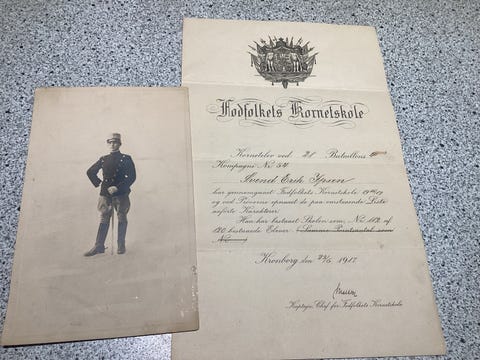 Fodfolkets Kornetskole
Kornetelev ved 28' Bataillons
Kompagni No. 54
Svend Erik Ipsen
har gennemgaaet Fodfolkets Kornetskole
og ved Prøverne opnaaet de paa omstaaende Liste
anførte Karakterer.
Han har bestaaet Skolen som No. 112 af
120 bestaaede Elever. (Samme Pointsantal som
Kronborg den 24/5 1917
Kaptajn, Chef for Fodfolkets Kornetskole